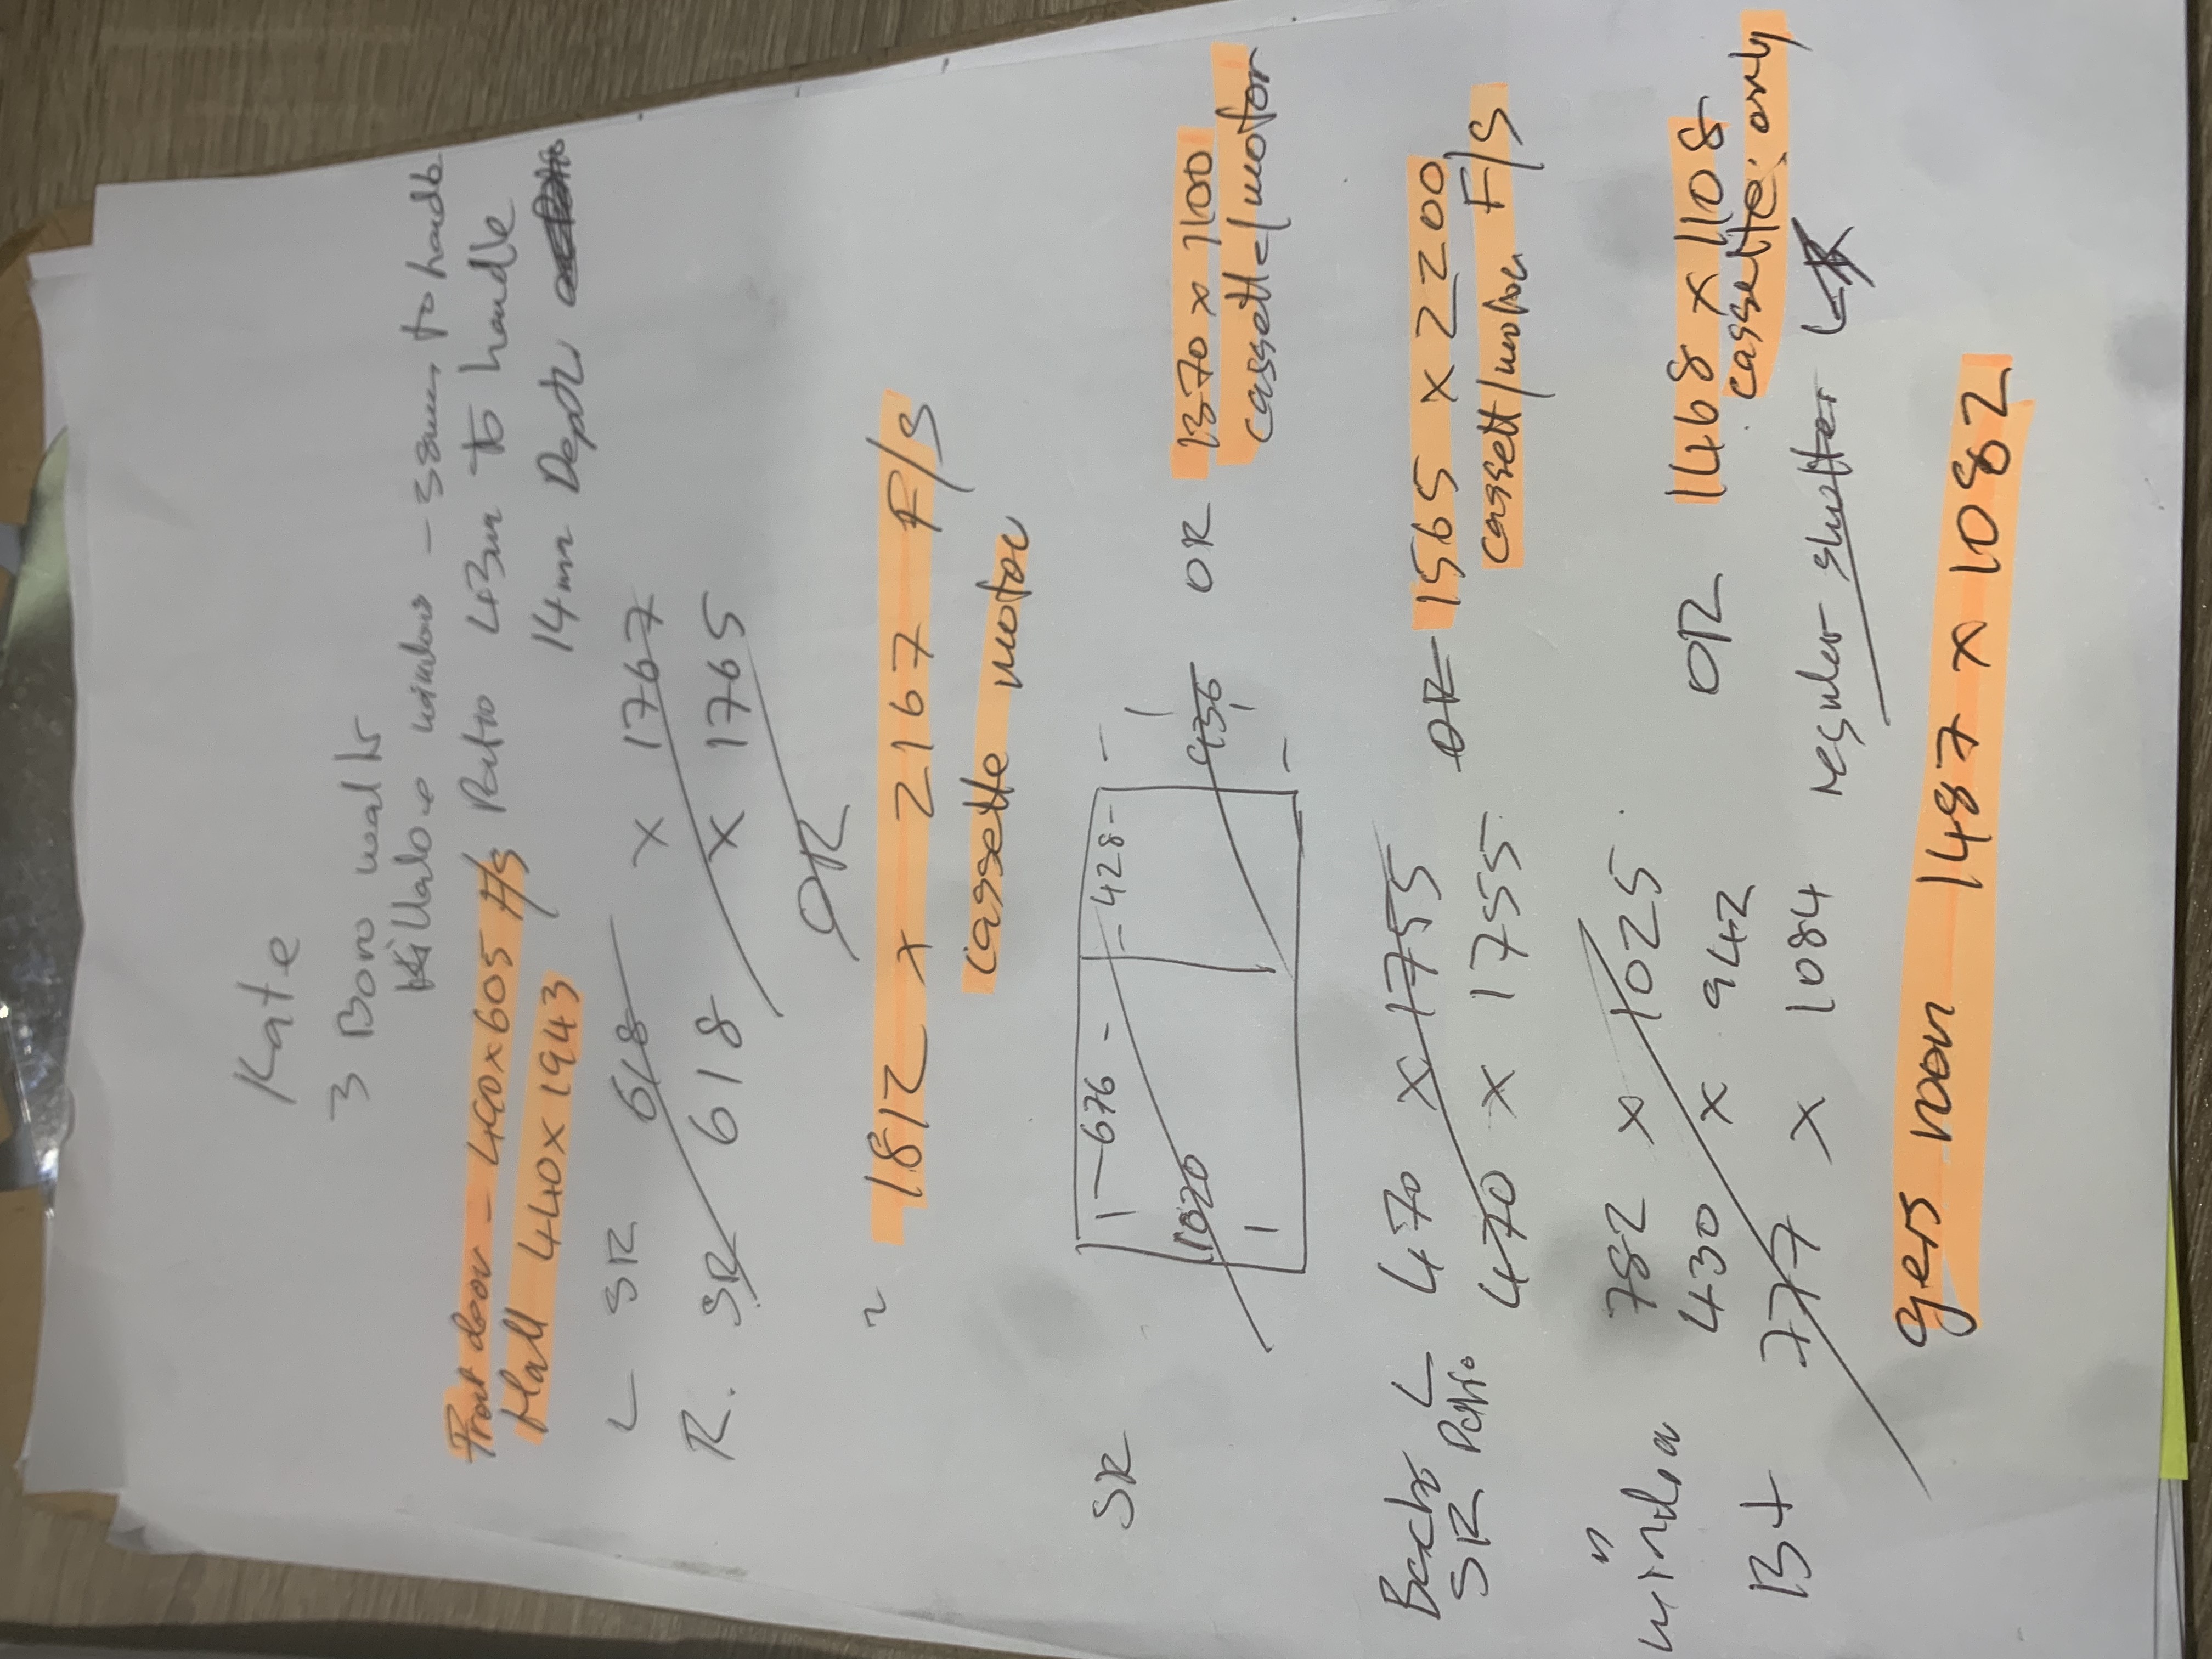 Kate
3 Boro walk
Killaloe window - 38mm to handle
Front door - 490x605 F/S Patio 43mm to handle
Hall 440x1943 14mm Depth
L SR 618 x 1767
R. SR 618 x 1765
OR
1812 x 2167 F/S
cassette motor
SR 1-676-
-428-
1020
936
OR 1370 x 1100
cassette/motor
Back L 470 x 1755 OR 1565 x 2200
SR Patio 470 x 1755 cassett/motor F/S
window 782 x 1025
430 x 942 OR 1468 x 1108
cassette only
B+ 777 x 1084 regular shutter
gers room 1487 x 1082